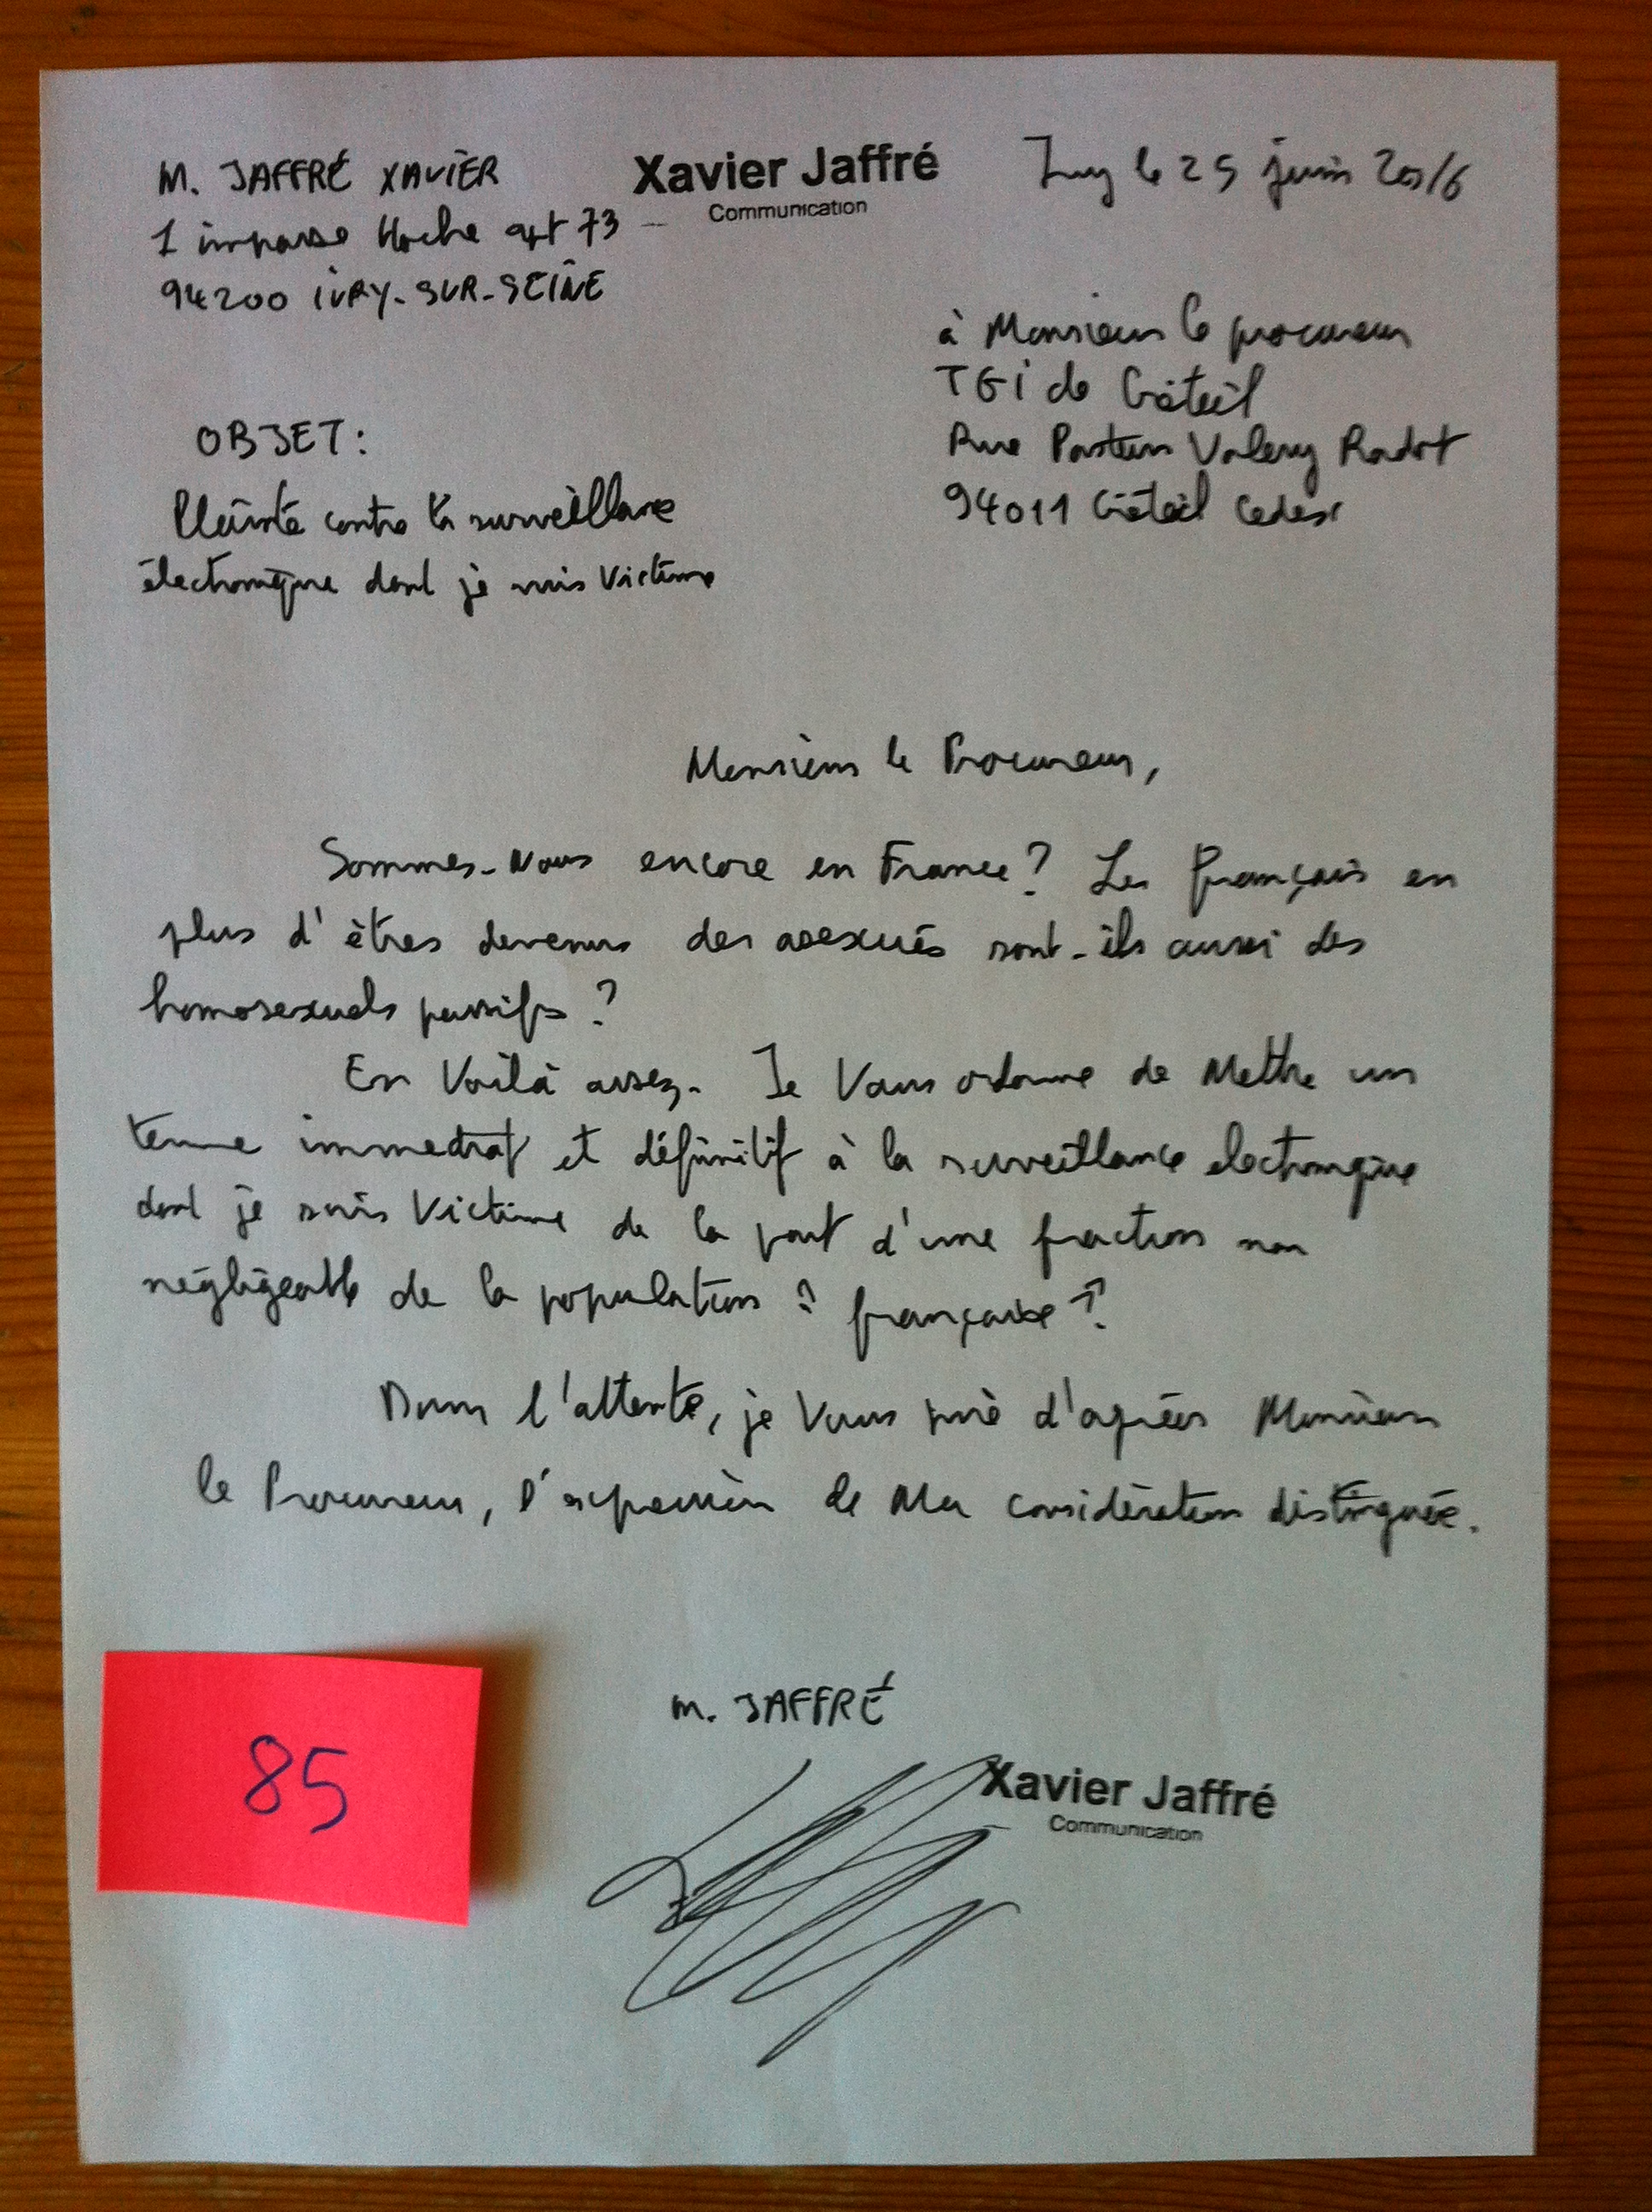 M. JAFFRÉ XAVIER
1 impasse Hoche apt 73
94200 IVRY-SUR-SEINE
Xavier Jaffré
Communication
Ivry le 25 juin 2016
à Monsieur le procureur
TGI de Créteil
Rue Pasteur Valery Radot
94011 Créteil Cedex
OBJET:
Plainte contre la surveillance
électronique dont je suis victime
Monsieur le Procureur,
Sommes-Nous encore en France? Les français en
plus d'êtres devenus des asexués sont-ils aussi des
homosexuels passifs?
En Voilà assez. Je Vous ordonne de Mettre un
terme immédiat et définitif à la surveillance electronique
dont je suis Victime de la part d'une fraction non
négligeable de la population ? française ??
Dans l'attente, je Vous prie d'agréer Monsieur
le Procureur, l'expression de Ma considération distinguée.
M. JAFFRÉ
Xavier Jaffré
Communication
85